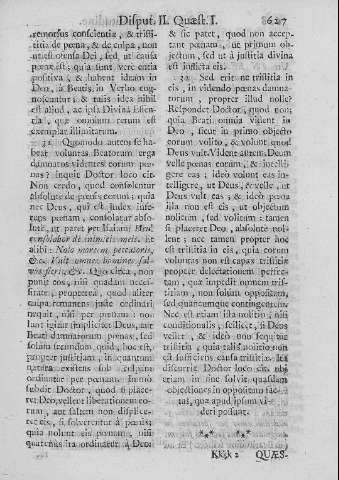 Disput. II. Quæst. I. 627
remorsus conscientia, & tristi-
titia de pœna, & de culpa, non
ut est offensa Dei, sed, ut causa
pœnæ est; quia sunt vere entia
positiva, & habent ideam in
Deo, ia Beatis, in Verbo cog-
noscuntur; & talis idea nihil
est aliud, ac ipsa Divina Essen-
tia, quæ omnium rerum est
exemplar illimitatum.
31 Quomodo autem se ha-
beat voluntas Beatorum erga
damnatos videntes eorum pœ-
nas? inquit Doctor loco cit.
Non credo, quod consolentur
absolute de pœnis eorum: quia
nec Deus, qui est Judex infe-
rens pœnam, consolatur abso-
lute, ut patet per Isaiam: Heu!
consolabor de inimicis meis. Et
alibi: Nolo mortem peccatoris,
&c. Vult omnes homines sal-
vos fieri, &c. Quia circa, non
punit eos, nisi quadam neces-
sitate, propterea, quod aliter
culpa remanens inde ordinari
nequit, nisi per pœnam: no-
lunt igitur simpliciter Deus, aut
Beati damnatorum pœnas, sed
solum secundum quid, hoc est,
propter justitiam, in quantum
natura existens sub culpa
ordinatur per pœnam. Immo
subdit Doctor, quod si place-
ret Deo, vellent liberationem eo-
rum, aut saltem non displice-
ret eis, si solverentur à pœnis;
quia nolunt eis pœnam, nisi
quatenus sita ordinatur à Deo:
& sic patet, quod non accep-
tant pœnam, ut primum ob-
jectum, sed ut à justitia divina
est justitia eis.
32 Sed erit ne tristitia in
eis, in videndo pœnas damna-
torum, propter illud nolle?
Respondet Doctor, quod non;
quia Beati omnia vident in
Deo, sicut in primo objecto
eorum volito, & volunt quod
Deus vult. Videre autem Deum
velle pœnas eorum, & intelli-
gere eas; ideò volunt eas in-
telligere, ut Deus, & velle, ut
Deus vult eas; & ideò pœna
illa non est in eis, ut objectum
nolitum, sed volitum: tamen
si placeret Deo, absolute nol-
lent; nec tamen propter hoc
est tristitia in eis, quia eorum
voluntas non est capax tristitiæ
propter delectationem perfec-
tam, quæ impedit omnem tris-
titiam, non solum oppositam,
sed quamcumque contingentem.
Nec est etiam illa nolitio; nisi
conditionalis, scilicet, si Deos
vellet, & ideò non sequitur
tristitia, quia talis nolitio non
est sufficiens causa tristitiæ. Ita
discurrit Doctor loco cit. ubi
etiam in fine solvit quasdam
objectiones in oppositum fac-
tas, quæ apud ipsum vi-
deri possunt.
*** ***
Kkkk 2 QUÆS-